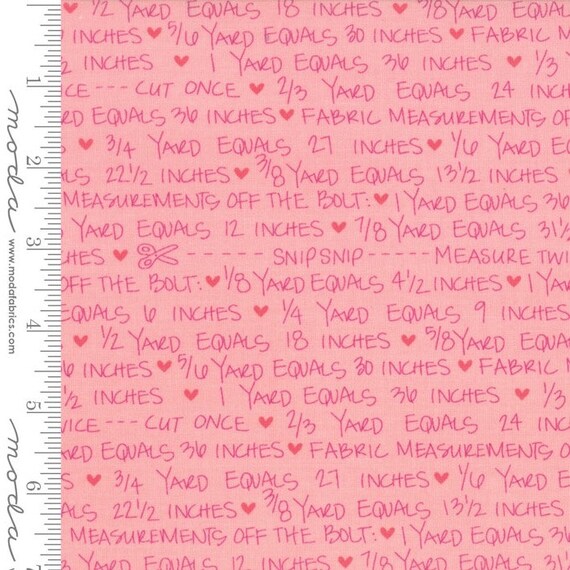 ♥ 1/2 YARD EQUALS 18 INCHES ♥ 7/8 YARD EQUALS
INCHES ♥ 5/6 YARD EQUALS 30 INCHES ♥ FABRIC
INCHES ♥ 1 YARD EQUALS 36 INCHES ♥ 1/3
--- CUT ONCE ♥ 2/3 YARD EQUALS 24
EQUALS 36 INCHES ♥ FABRIC MEASUREMENTS
♥ 3/4 YARD EQUALS 27 INCHES ♥ 1/6 YARD
22 1/2 INCHES ♥ 3/8 YARD EQUALS 13 1/2 INCHES
MEASUREMENTS OFF THE BOLT: ♥ 1 YARD EQUALS 36
YARD EQUALS 12 INCHES ♥ 7/8 YARD EQUALS 31 1/2
♥ ------ SNIP SNIP ----- MEASURE
OFF THE BOLT: ♥ 1/8 YARD EQUALS 4 1/2 INCHES ♥ 1
EQUALS 6 INCHES ♥ 1/4 YARD EQUALS 9 INCHES
♥ 1/2 YARD EQUALS 18 INCHES ♥ 5/8 YARD EQUALS
INCHES ♥ 5/6 YARD EQUALS 30 INCHES ♥ FABRIC
INCHES ♥ 1 YARD EQUALS 36 INCHES ♥ 1/3
--- CUT ONCE ♥ 2/3 YARD EQUALS 24
EQUALS 36 INCHES ♥ FABRIC MEASUREMENTS
♥ 3/4 YARD EQUALS 27 INCHES ♥ 1/6 YARD
22 1/2 INCHES ♥ 3/8 YARD EQUALS 13 1/2 INCHES
MEASUREMENTS OFF THE BOLT: ♥ 1 YARD EQUALS 36
YARD EQUALS 12 INCHES ♥ 7/8 YARD EQUALS
moda
www.modafabrics.com
moda
1
2
3
4
5
6